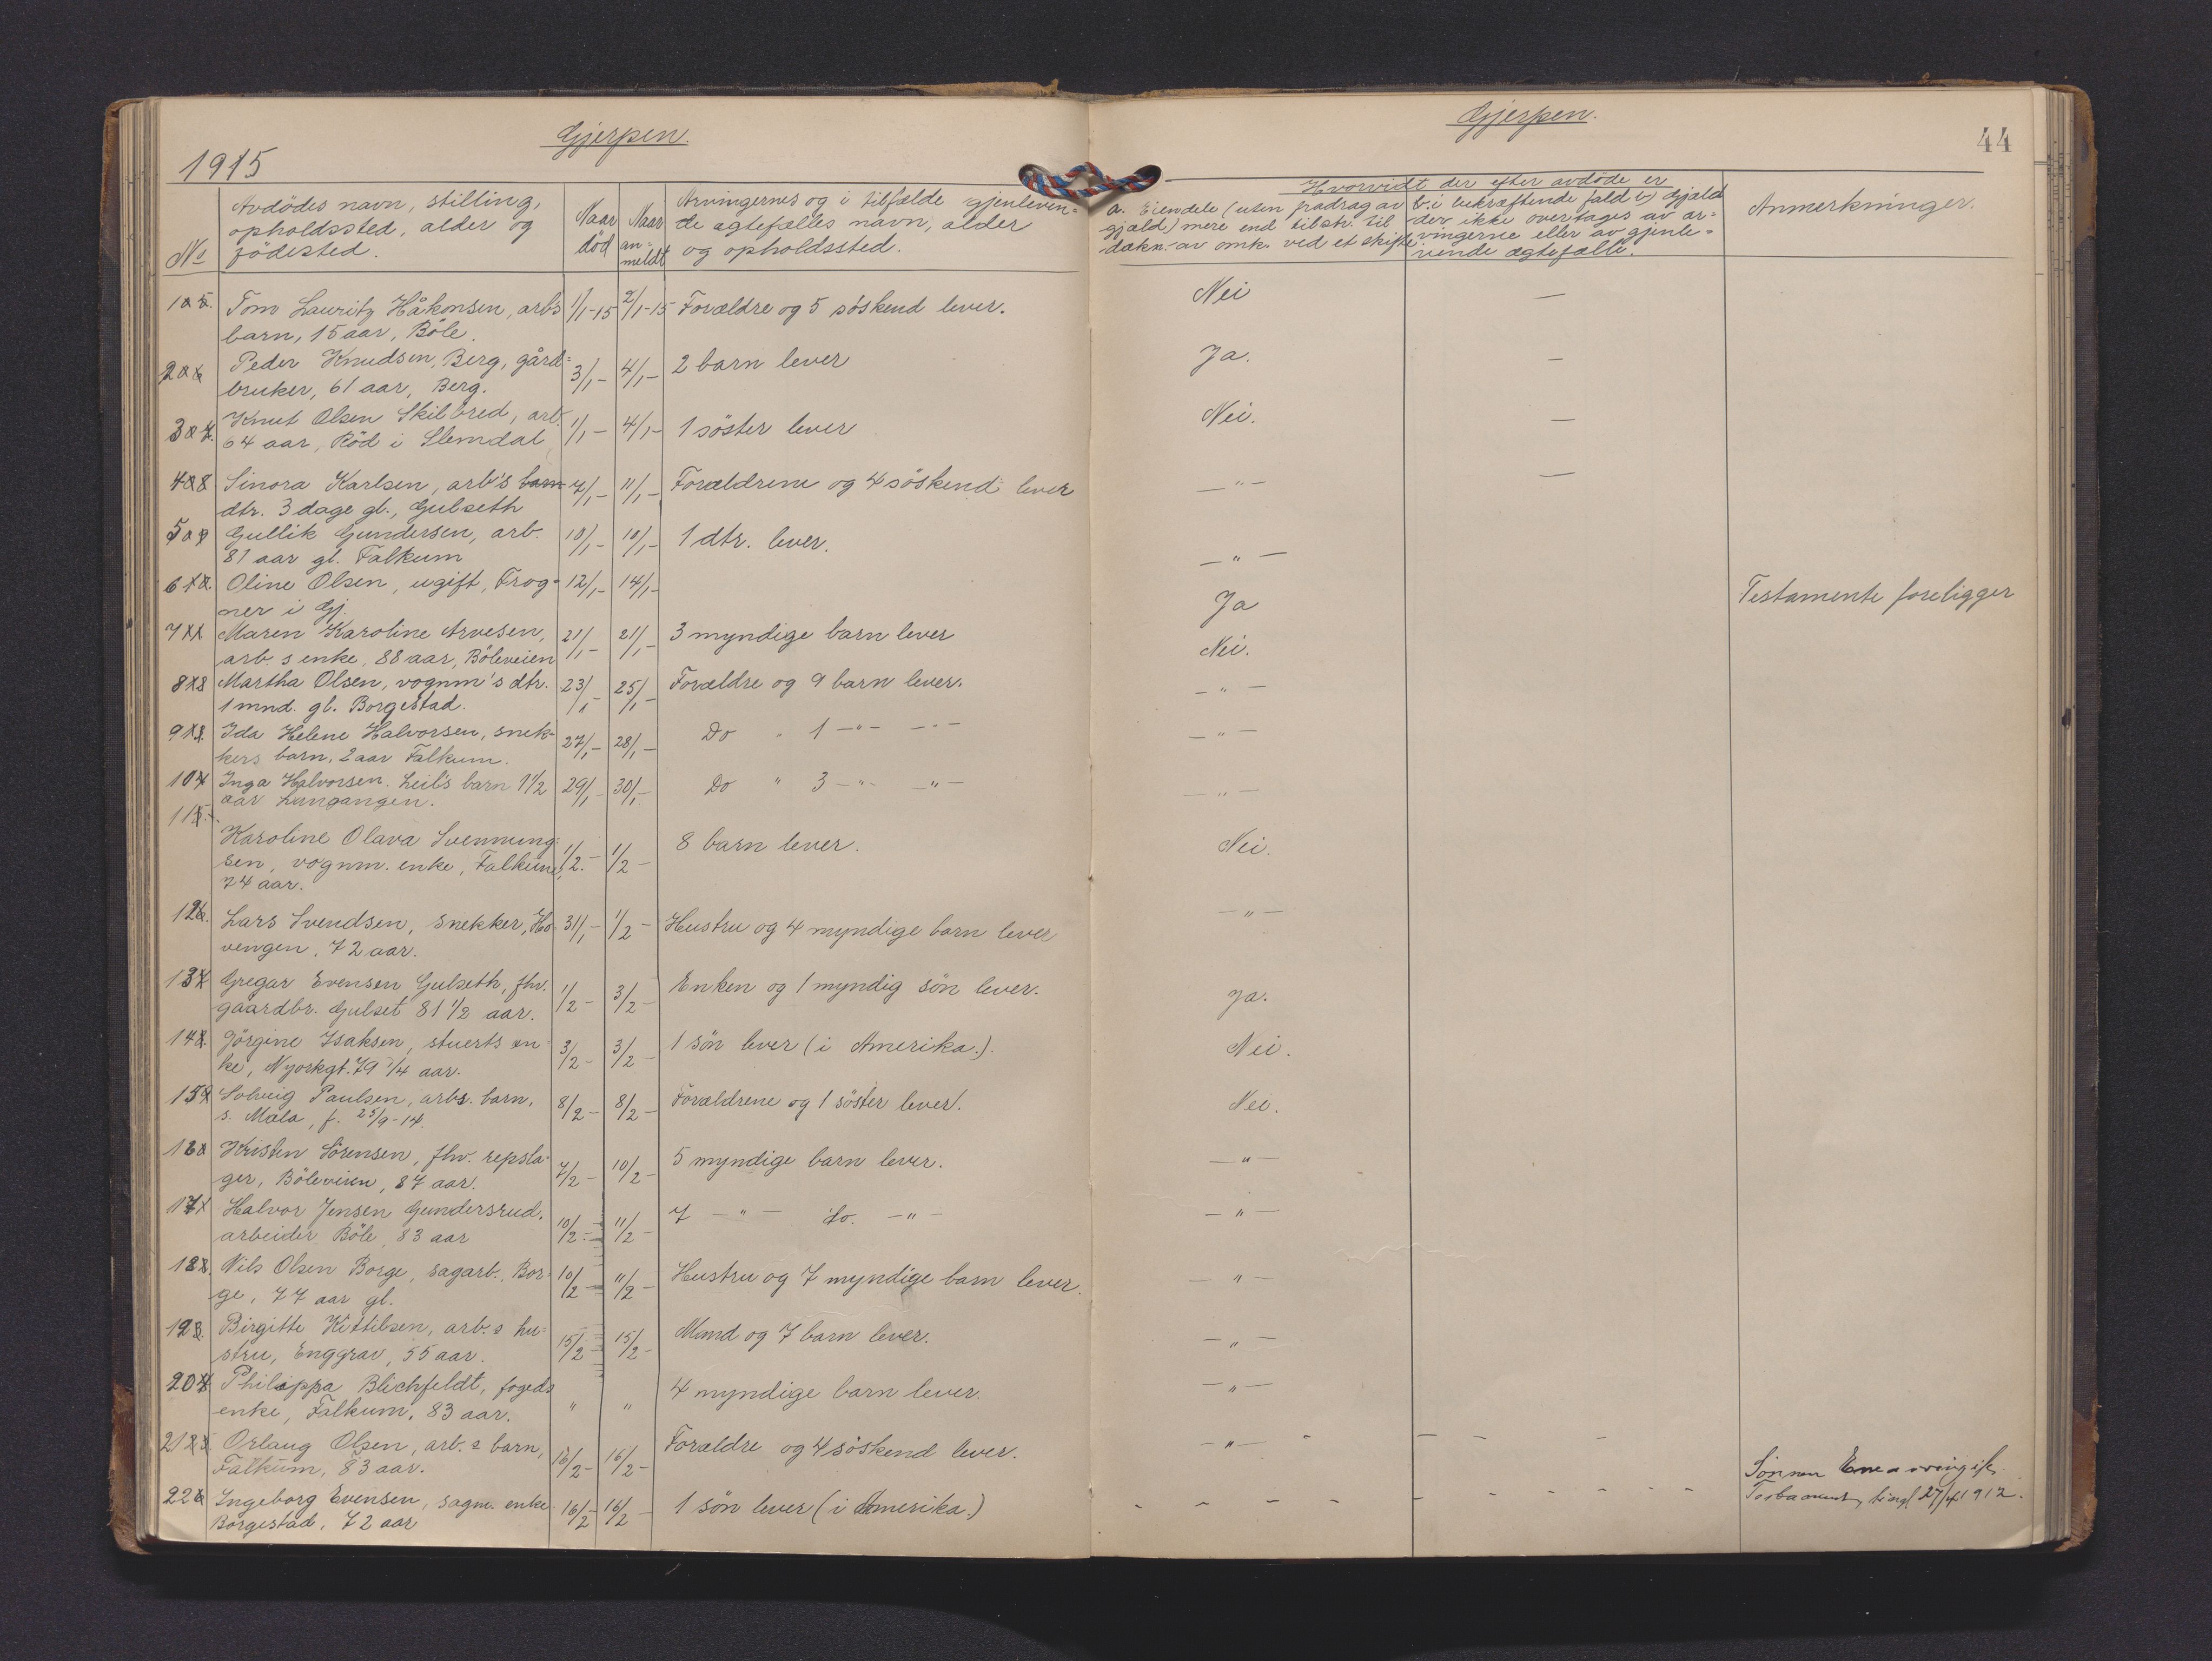 Gjerpen.
1915
No
Avdödes navn, stilling,
opholdssted, alder og
födested.
Naar
död
Naar
an=
meldt
Arvingernes og i tilfælde gjenleven=
de ægtefælles navn, alder
og opholdssted.
Tom Lauritz Håkonsen, arbs 1/1-15 2/1-15 Forældre og 5 söskend lever.
barn, 15 aar, Böle.
Peder Knudsen Berg, gård= 3/1- 4/1- 2 barn lever
bruker, 61 aar, Berg.
Knut Olsen Skilbred, arb. 1/1- 4/1- 1 söster lever
64 aar, Röd i Slemdal
Sinora Karlsen, arb's barn 7/1- 11/1- Forældrene og 4 söskend lever
dtr. 3 dage gl., Gulseth
Gullik Gundersen, arb. 10/1- 10/1- 1 dtr. lever.
81 aar gl. Falkum
Oline Olsen, ugift, Frog- 12/1- 14/1-
ner i Gj.
Maren Karoline Arvesen, 21/1- 21/1- 3 myndige barn lever
arb.s enke, 88 aar, Böleveien
Martha Olsen, vognm's dtr. 23/1- 25/1- Forældre og 9 barn lever.
1 mnd. gl. Borgestad.
Ida Helene Halvorsen, snek- 27/1- 28/1- Do " 1 -"- -"-
kers barn, 2 aar Falkum.
Inga Halvorsen. Leil's barn 1 1/2 29/1- 30/1- Do " 3 -"- -"-
aar Langangen.
Karoline Olava Svennung 1/2- 1/2- 8 barn lever.
sen, vognm. enke, Falkum,
74 aar.
Lars Svendsen, snekker, Ho 31/1- 1/2- Hustru og 4 myndige barn lever
vengen, 72 aar.
Gregar Evensen Gulseth, fhv. 1/2- 3/2- Enken og 1 myndig sön lever.
gaardbr. Gulset 81 1/2 aar.
Jörgine Isaksen, stuerts en- 3/2- 3/2- 1 sön lever (i Amerika.).
ke, Nyorkgt. 79 1/4 aar.
Solveig Paulsen, arbs. barn, 8/2- 8/2- Forældrene og 1 söster lever.
s. Mæla, f. 25/9-14.
Kristen Sörensen, fhv. repsla- 7/2- 10/2- 5 myndige barn lever.
ger, Böleveien, 87 aar.
Halvor Jensen Gundersrud, 10/2- 11/2- 7 -"- do. -"-
arbeider, Böle, 83 aar
Nils Olsen Borge, sagarb., Bor- 10/2- 11/2- Hustru og 7 myndige barn lever.
ge, 77 aar gl.
Birgitte Kittilsen, arb.s hu= 15/2- 15/2- Mand og 7 barn lever.
stru, Enggrav, 55 aar.
Philippa Blichfeldt, fogeds " " 4 myndige barn lever.
enke, Falkum, 83 aar.
Orlaug Olsen, arb.s barn, 16/2- 16/2- Forældre og 4 söskend lever.
Falkum, 83 aar.
Ingeborg Evensen, sagm. enke 16/2- 16/2- 1 sön lever (i Amerika.)
Borgestad, 72 aar
Gjerpen.
44
Hvorvidt der efter avdöde er
a. Eiendele (uten fradrag av
gjæld) mere end tilstr. til
dækn. av omk. ved et skifte.
b. i bekræftende fald er gjæld
der ikke overtages av ar=
vingerne eller av gjenle=
vende ægtefælle.
Anmerkninger.
Nei —
Ja. —
Nei. —
-"- —
-"-
Ja Testamente foreligger
Nei.
-"-
-"-
-"-
Nei.
-"-
Ja.
Nei.
Nei.
-"-
-"-
-"-
-"-
-"-
-"- - - - -
Sönnen
- - - - - - - - - tingl 27/4 1912.